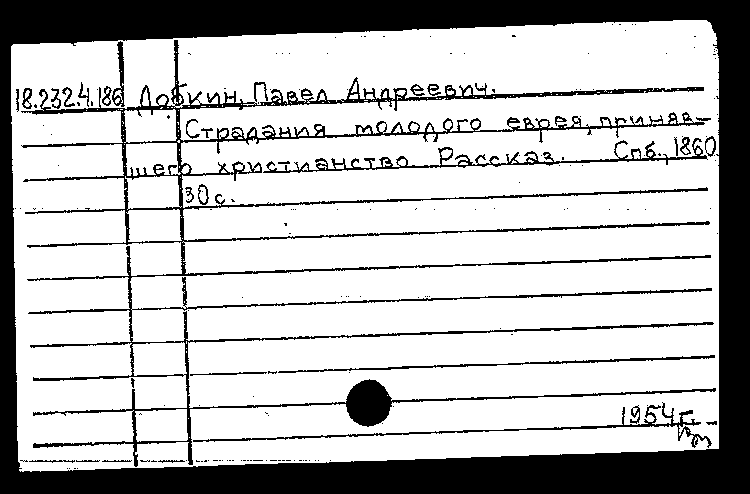 18.232.4.186 Добкин, Павел Андреевич.
Страдания молодого еврея, приняв-
шего христианство Рассказ. Спб., 1860
30 с.
1954 г.